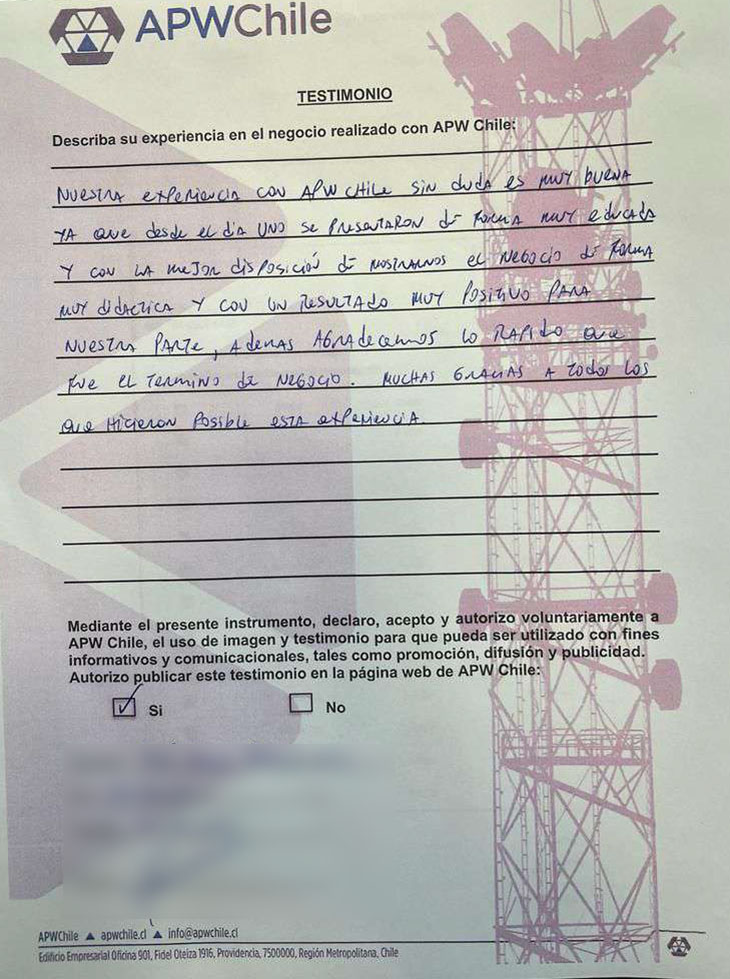 APWChile
TESTIMONIO
Describa su experiencia en el negocio realizado con APW Chile:
NUESTRA experiencia con APW CHILE SIN duda es MUY buena
YA que desde el dia UNO se PRESENTARON de FORMA MUY educada
Y CON LA mejor disposición de MOSTRARNOS el NEGOCIO de FORMA
MUY didactica Y CON UN RESULTADO MUY POSITIVO PARA
NUESTRA PARTE, Ademas AGRAdecemos lo RAPIDO que
FUE el Termino de NEGOCIO. MUCHAS GRACIAS A todos los
que HICIERON Posible ESTA experiencia.
Mediante el presente instrumento, declaro, acepto y autorizo voluntariamente a
APW Chile, el uso de imagen y testimonio para que pueda ser utilizado con fines
informativos y comunicacionales, tales como promoción, difusión y publicidad.
Autorizo publicar este testimonio en la página web de APW Chile:
Si No
APWChile ▲ apwchile.cl ▲ info@apwchile.cl
Edificio Empresarial Oficina 901, Fidel Oteiza 1916, Providencia, 7500000, Región Metropolitana, Chile